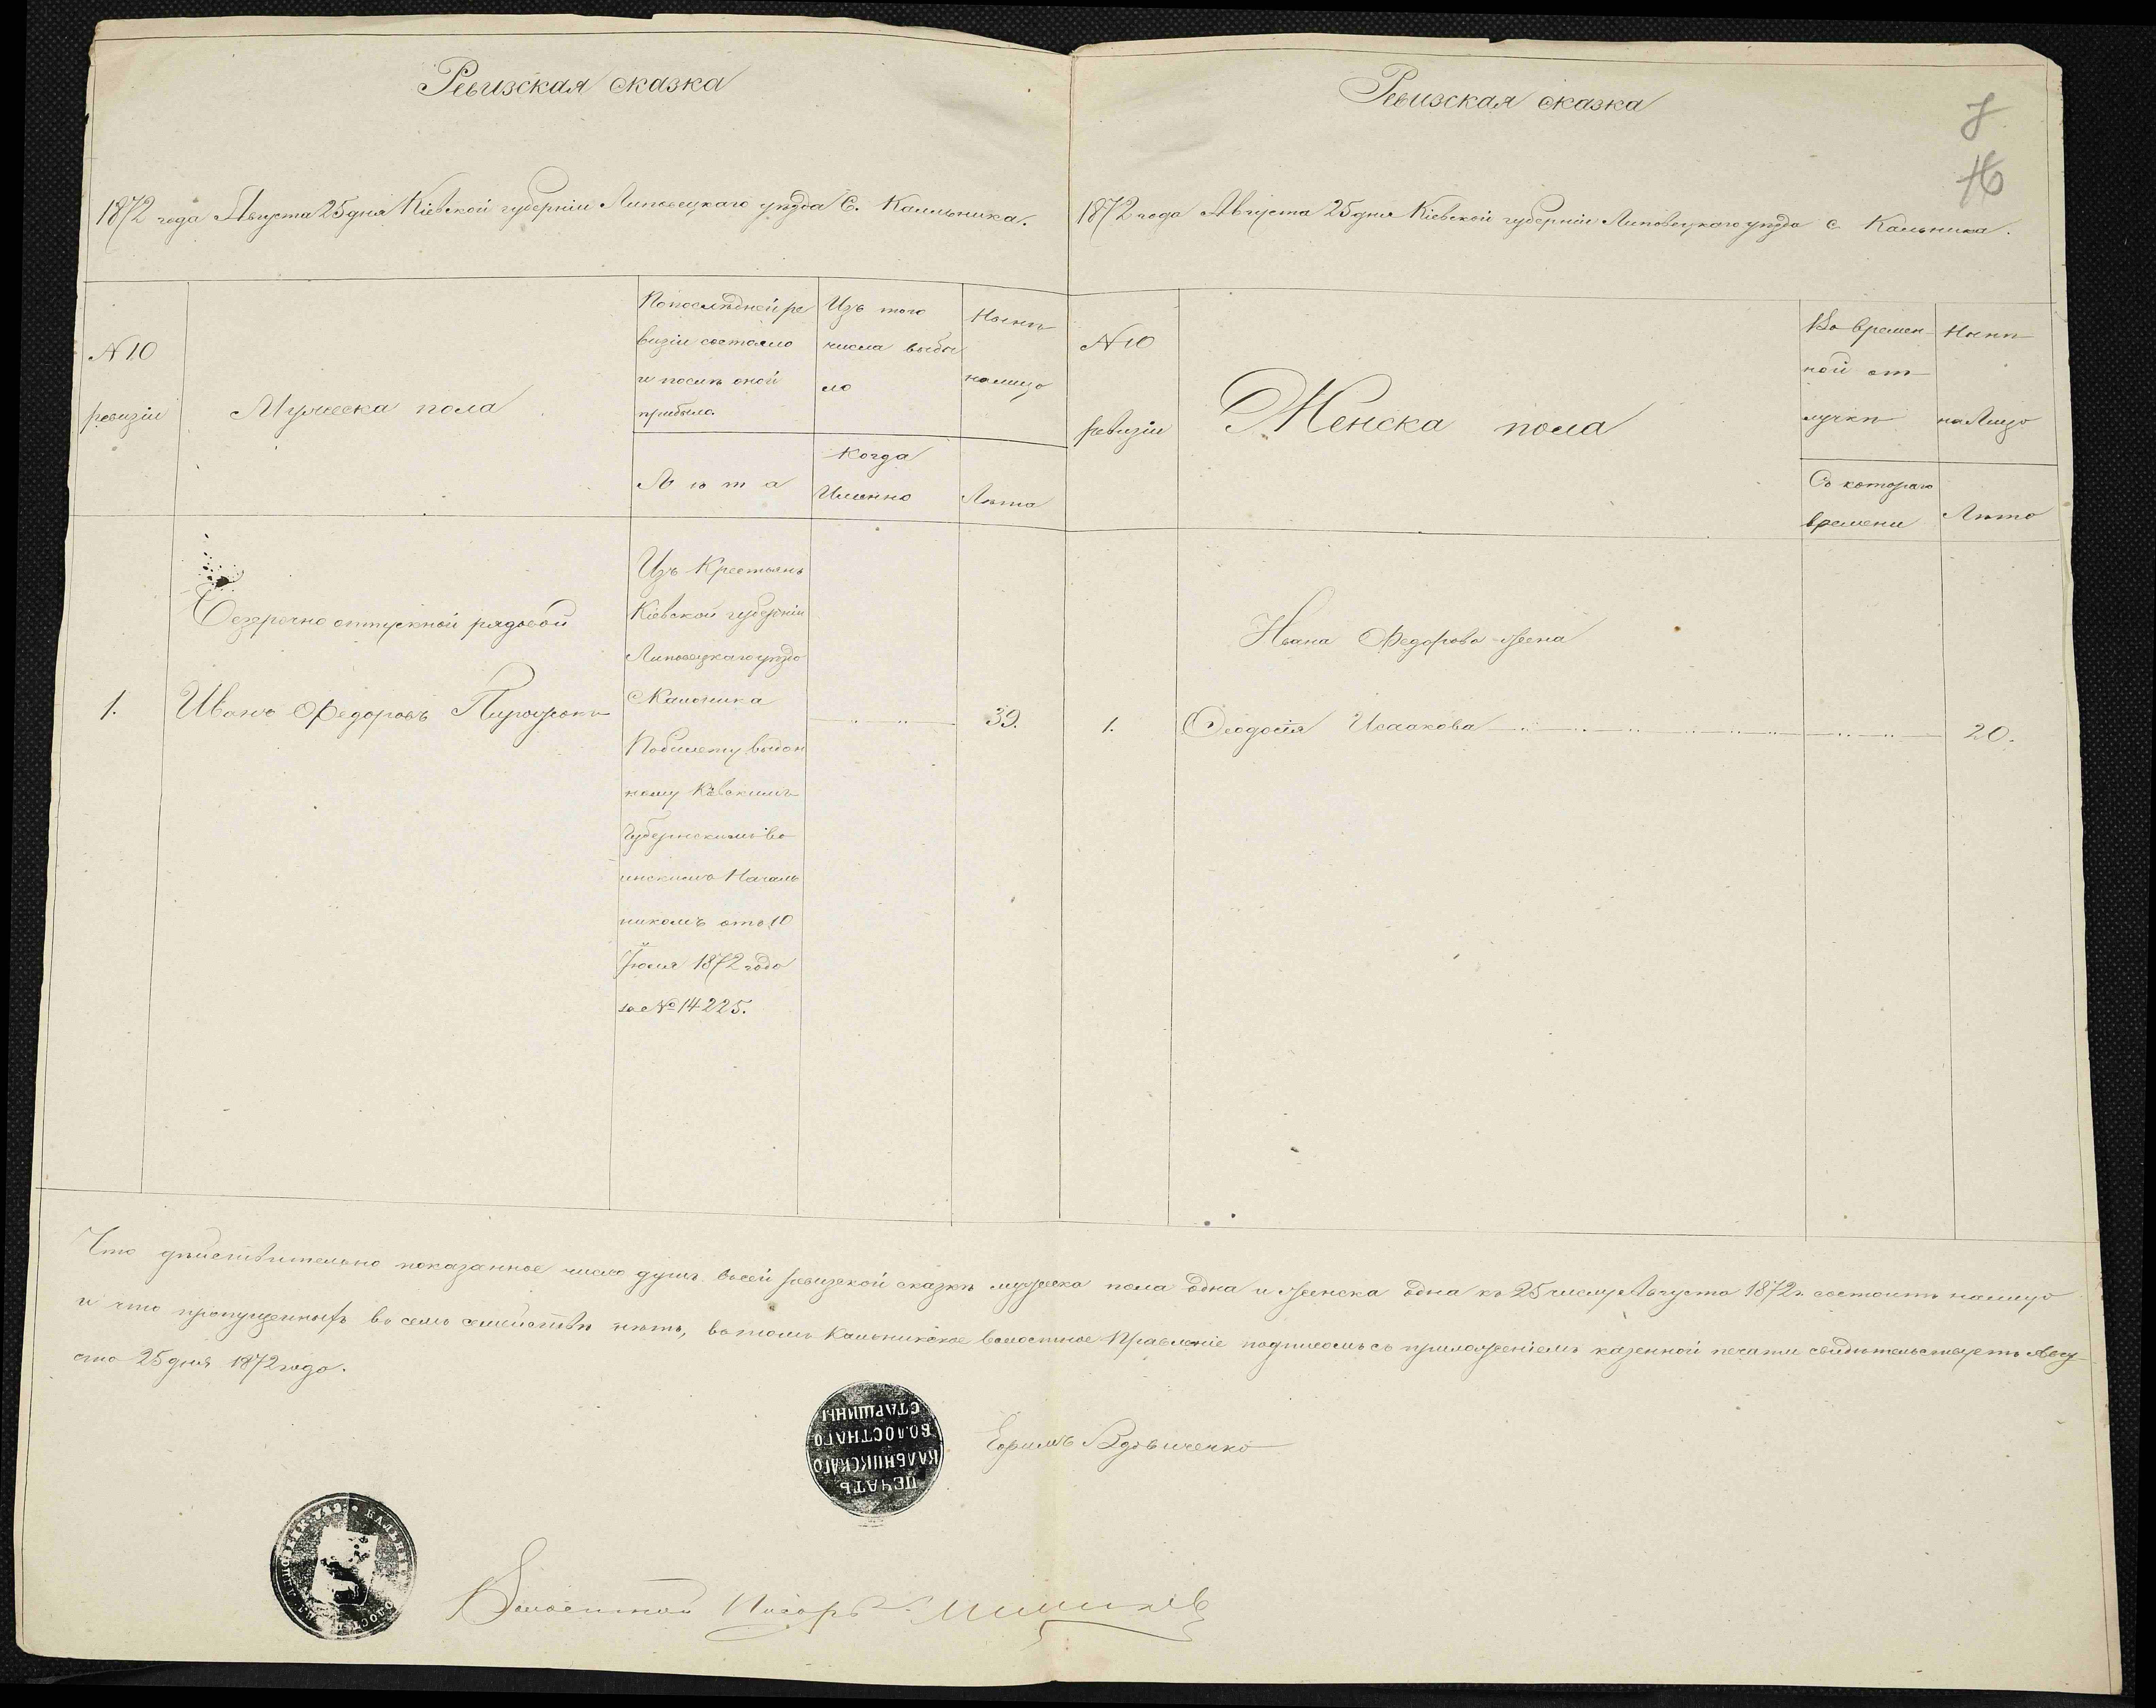 Ревизская сказка
1872 года Августа 25 дня Кіевской губерніи Липовецкаго уѣзда С. Кальника.
N 10
ревизіи
Мужеска пола
По послѣдней ре
визіи состояло
и послѣ оной
прибыло.
Лѣта
Изъ того
числа выбы
ло
Когда
Именно
Нынѣ
налицо
Лѣта
Безсрочно отпускной рядовой
1. Иванъ Федоровъ
Изъ Крестьянъ
Кіевской губерніи
Липовецкаго уѣзда
Кальника
По билету выдан
ному Кіевскимъ
Губернскимъ во
инскимъ Началь
никомъ отъ 10
Іюля 1872 года
за № 14225.
39.
Ревизская сказка
8
16
1872 года Августа 25 дня Кіевской губерніи Липовецкаго уѣзда с. Кальника.
N 10
ревизіи
Женска пола
Во времен
ной от
лучкѣ
Съ котораго
времени
Нынѣ
на Лицо
Лѣта
Ивана Федорова жена
1. Феодосія Исаакова 20.
Что дѣйствительно показанное число душъ въ сей ревизской сказкѣ мужеска пола одна и женска одна къ 25 числу Августа 1872 г. состоитъ налицо
и что пропущенныхъ въ семъ семействѣ нѣтъ, въ томъ Кальникское волостное Правленіе подписомъ съ приложеніемъ казенной печати свидѣтельствуетъ Авгу
ста 25 дня 1872 года.
ПЕЧАТЬ
КАЛЬНИКСКАГО
ВОЛОСТНАГО
СТАРШИНЫ
Ефимъ Вдовиченко
Волостной Писарь